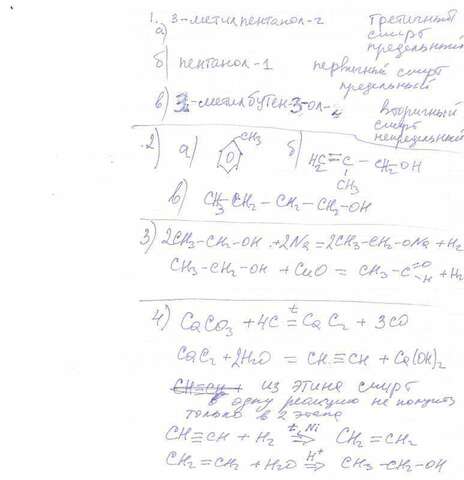 1. 3-метилпентанол-2 третичный
а) спирт
предельный
б) пентанол-1 первичный спирт
предельный
в) 3-метилбутен-3-ол- вторичный
спирт
непредельный
2) а) CH3 б) H2C=C-CH2OH
CH3
в) CH3CH2-CH2-CH2-OH
3) 2CH3-CH2-OH+2Na=2CH3-CH2-ONa+H2
CH3-CH2-OH+CuO=CH3-C=O-H+H2
4) t
CaCO3+4C=CaC2+3CO
CaC2+2H2O=CH≡CH+Ca(OH)2
CH≡CH+ из этина спирт
в одну реакцию не получить
только в 2 этапа
CH≡CH+H2 t,Ni⇒ CH2=CH2
CH2=CH2+H2O H+⇒ CH3-CH2-OH